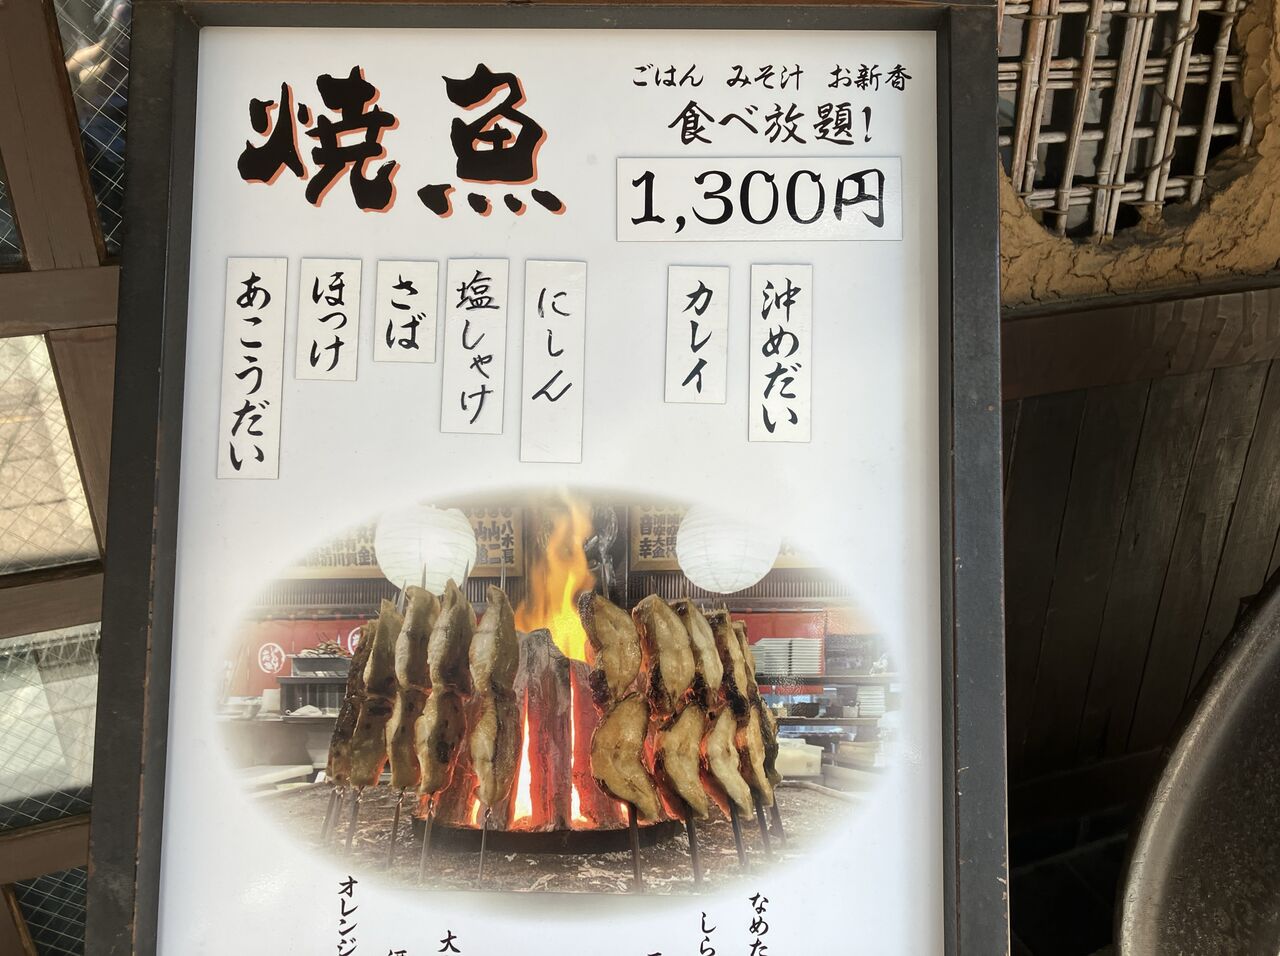 焼魚
ごはん みそ汁 お新香
食べ放題!
1,300円
沖めだい
カレイ
にしん
塩しゃけ
さば
ほっけ
あこうだい
なめた
しら
大
オレンジ